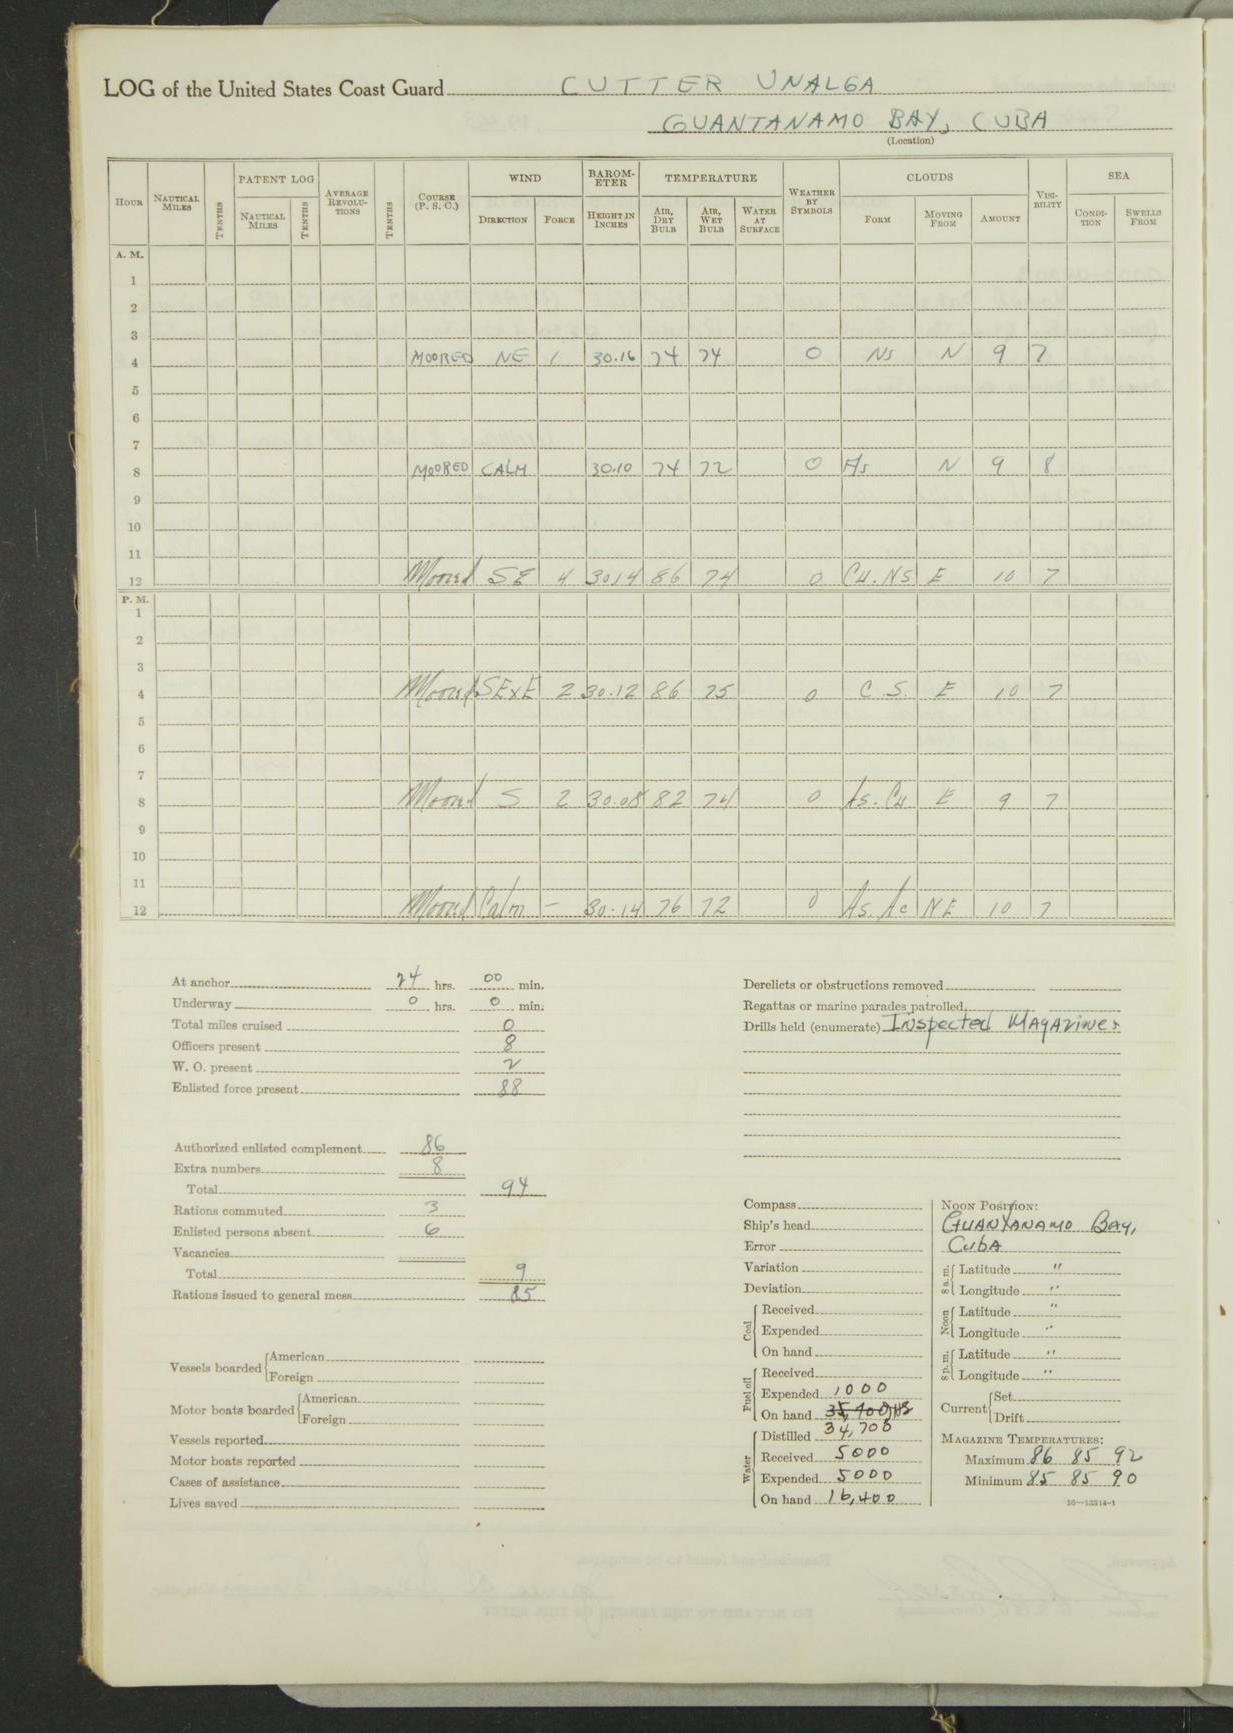 LOG of the United States Coast Guard CUTTER UNALGA
GUANTANAMO BAY, CUBA
(Location)
HOUR NAUTICAL MILES TENTHS PATENT LOG NAUTICAL MILES TENTHS AVERAGE REVOLU-TIONS TENTHS COURSE (P. S. C.) WIND DIRECTION FORCE BAROM-ETER HEIGHT IN INCHES TEMPERATURE AIR, DRY BULB AIR, WET BULB WATER AT SURFACE WEATHER BY SYMBOLS CLOUDS FORM MOVING FROM AMOUNT VISI-BILITY SEA CONDI-TION SWELLS FROM
A. M.
1
2
3
4 MOORED NE 1 30.16 74 74 0 Ns N 9 7
5
6
7
8 MOORED CALM 30.10 74 72 0 As N 9 8
9
10
11
12 Moored SE 4 30.14 86 74 0 Cu. NS E 10 7
P. M.
1
2
3
4 Moored SExE 2 30.12 86 75 0 C S. E 10 7
5
6
7
8 Moored S 2 30.08 82 74 0 As. Cu E 9 7
9
10
11
12 Moored Calm – 30.14 76 72 0 As. Ac NE 10 7
At anchor 24 hrs. 00 min.
Underway 0 hrs. 0 min.
Total miles cruised 0
Officers present 8
W. O. present 2
Enlisted force present 88
Authorized enlisted complement 86
Extra numbers 8
Total 94
Rations commuted 3
Enlisted persons absent 6
Vacancies
Total 9
Rations issued to general mess 85
Vessels boarded American
Foreign
Motor boats boarded American
Foreign
Vessels reported
Motor boats reported
Cases of assistance
Lives saved
Derelicts or obstructions removed
Regattas or marine parades patrolled
Drills held (enumerate) Inspected Magazines
Compass
Ship's head
Error
Variation
Deviation
Coal Received
Expended
On hand
Fuel oil Received
Expended 1000
On hand 35,700
34,700
Water Distilled
Received 5000
Expended 5000
On hand 16,400
NOON POSITION:
GUANTANAMO BAY,
CUBA
8 a. m. Latitude "
Longitude "
Noon Latitude "
Longitude "
8 p. m. Latitude "
Longitude "
Current Set
Drift
MAGAZINE TEMPERATURES:
Maximum 86 85 92
Minimum 85 85 90
16—13314-1